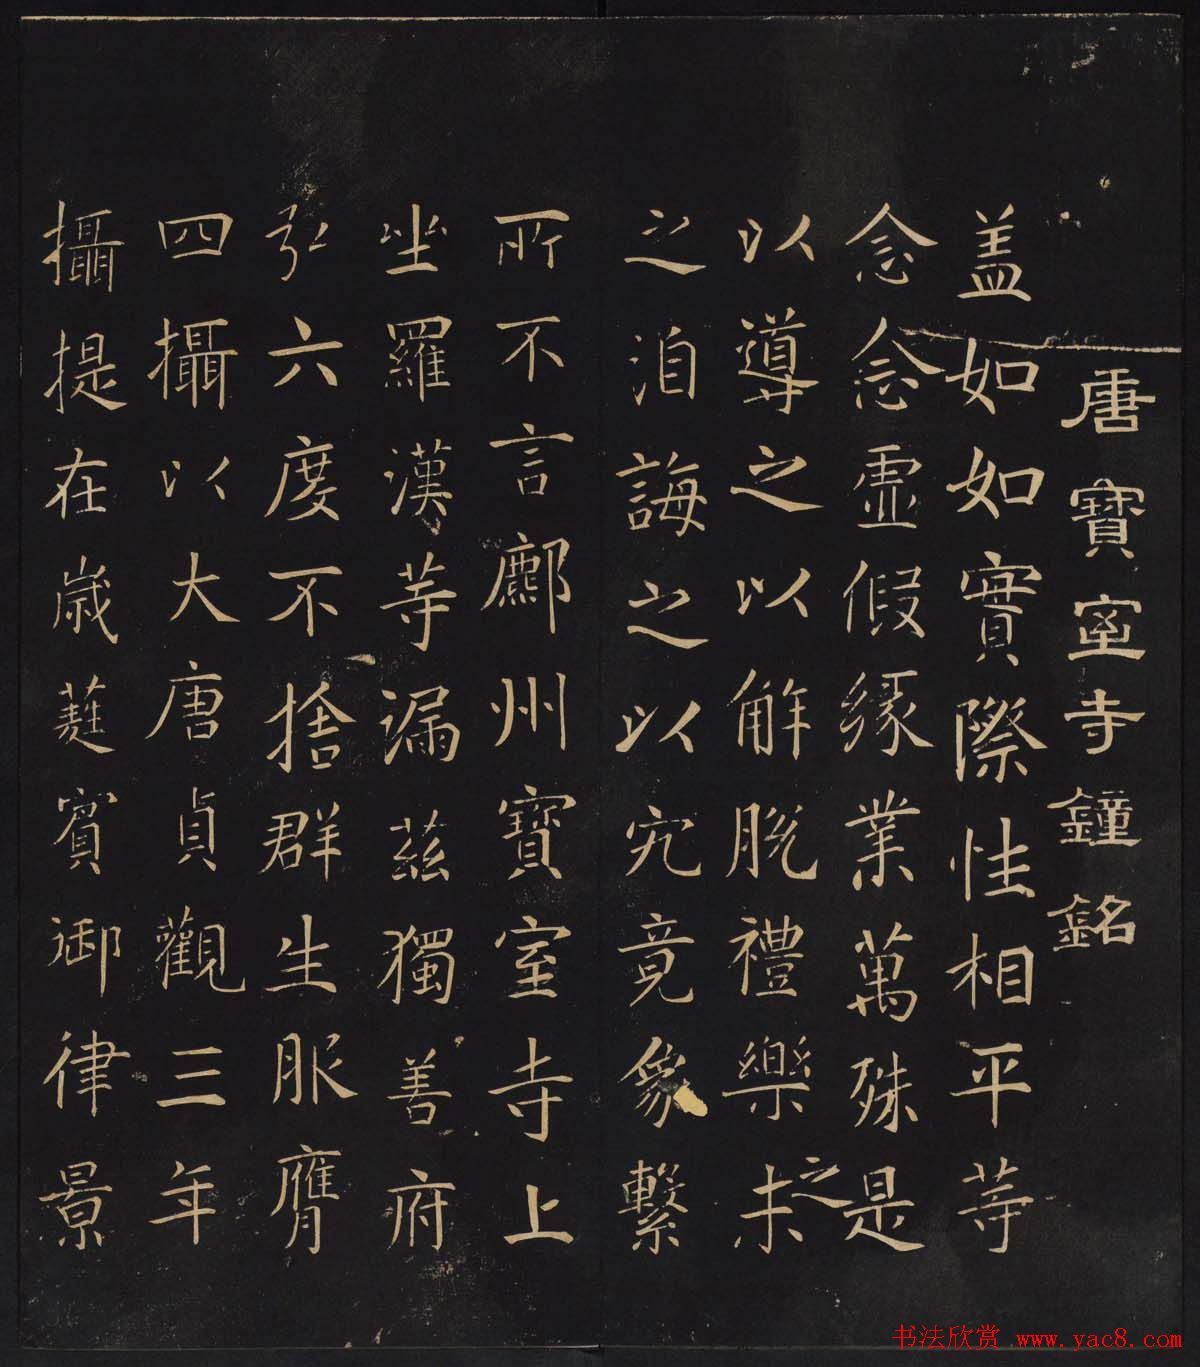 唐寶室寺鐘銘
盖如如實際性相平等
念念虛假緣業萬殊是
以導之以解脫禮樂未之
之洎誨之以究竟象繫
所不言鄜州寶室寺上
坐羅漢等漏茲獨善府
弘六度不捨群生服膺
四攝以大唐貞觀三年
攝提在歲蕤賓御律景
书法欣赏 www.yac8.com